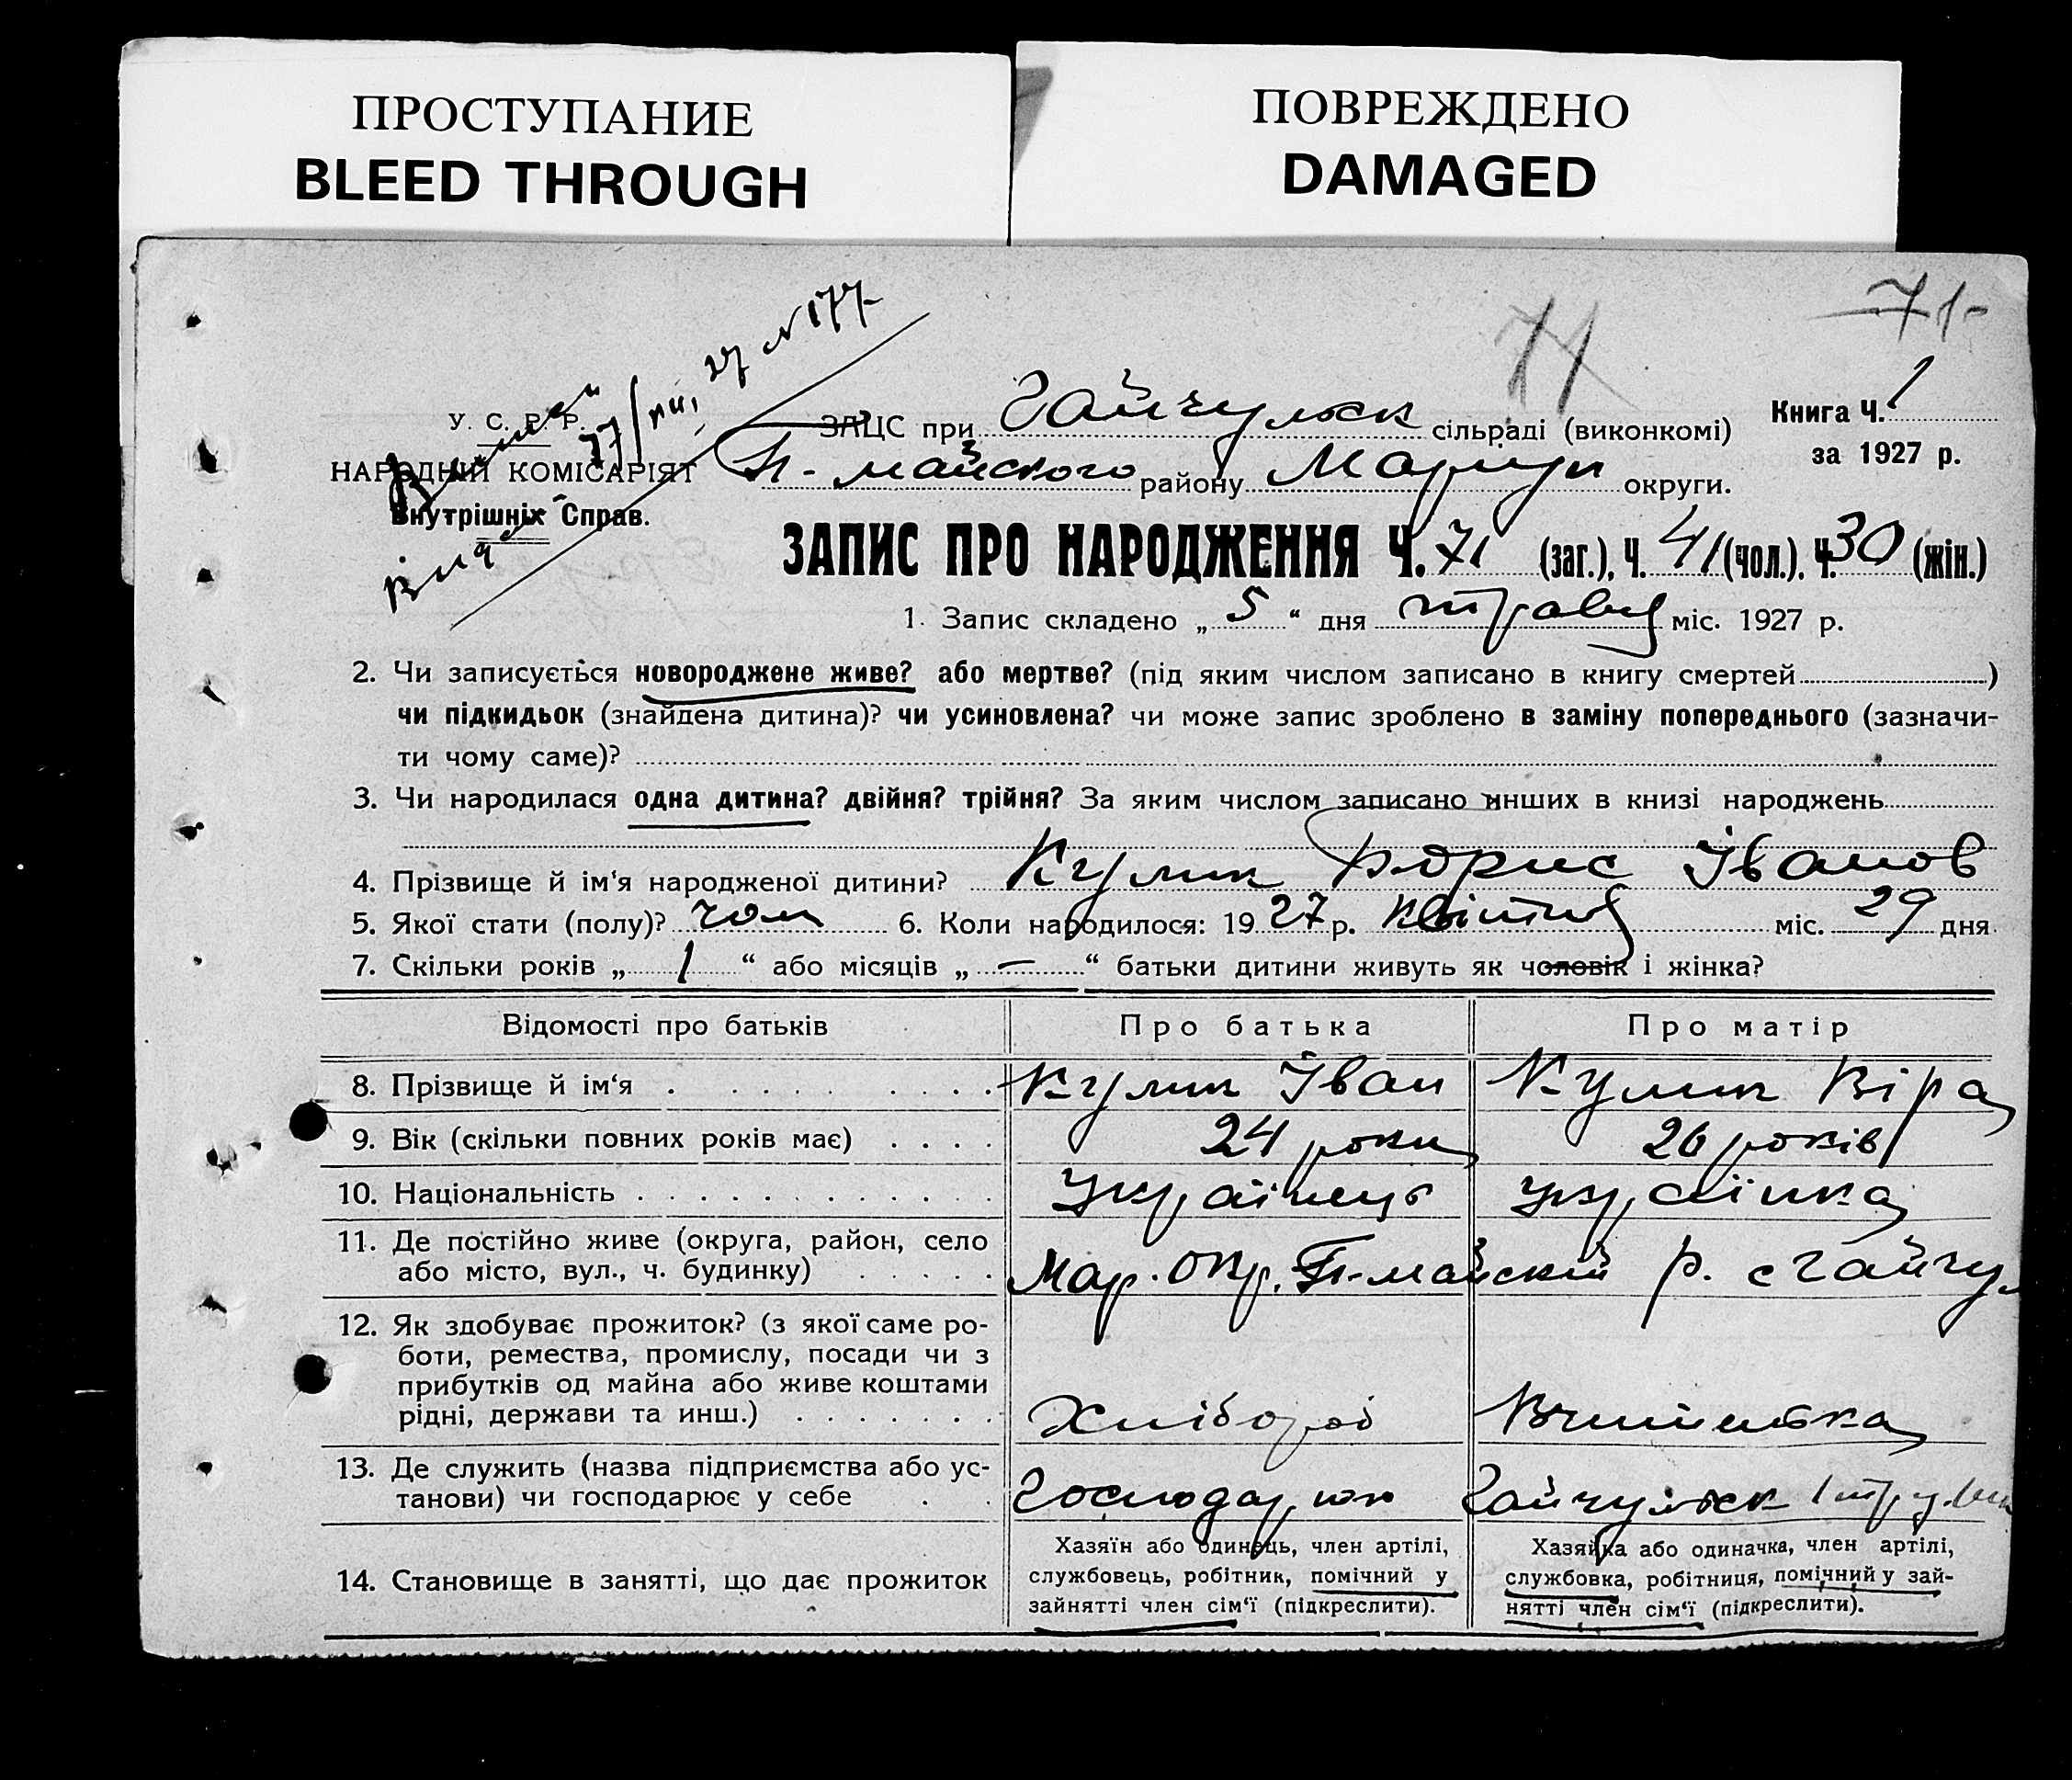 ПРОСТУПАНИЕ
BLEED THROUGH
ПОВРЕЖДЕНО
DAMAGED
71-
71
У. С. Р. Р.
НАРОДНІЙ КОМІСАРІЯТ
Внутрішніх Справ.
ЗАЦС при Гайчульск сільраді (виконкомі)
П-майского району Маріуп округи.
Книга Ч. 1
за 1927 р.
ЗАПИС ПРО НАРОДЖЕННЯ Ч. 71 (заг.), Ч. 41 (чол.). Ч. 30 (жін.)
1. Запис складено „ 5 “ дня травня міс. 1927 р.
2. Чи записується новороджене живе? або мертве? (під яким числом записано в книгу смертей )
чи підкидьок (знайдена дитина)? чи усиновлена? чи може запис зроблено в заміну попереднього (зазначи-
ти чому саме)?
3. Чи народилася одна дитина? двійня? трійня? За яким числом записано инших в книзі народжень
4. Прізвище й ім‘я народженої дитини? Кулик Борис Іванов
5. Якої стати (полу)? чол 6. Коли народилося: 19 27 р. Квітня міс. 29 дня
7. Скільки років „ 1 “ або місяців „ — “ батьки дитини живуть як чоловік і жінка?
Відомості про батьків Про батька Про матір
8. Прізвище й ім‘я Кулик Іван Кулик Віра
9. Вік (скільки повних років має) 24 роки 26 років
10. Національність Українець Українка
11. Де постійно живе (округа, район, село
або місто, вул., ч. будинку) Мар. окр. П-майский р. с Гайчул
12. Як здобуває прожиток? (з якої саме ро-
боти, ремества, промислу, посади чи з
прибутків од майна або живе коштами
рідні, держави та инш.) Хлібороб Вчителька
13. Де служить (назва підприємства або ус-
танови) чи господарює у себе Гайчульск
14. Становище в занятті, що дає прожиток
Хазяїн або одинець, член артілі,
службовець, робітник, помічний у
зайнятті член сім‘ї (підкреслити).
Хазяйка або одиначка, член артілі,
службовка, робітниця, помічний у зай-
нятті член сім‘ї (підкреслити).